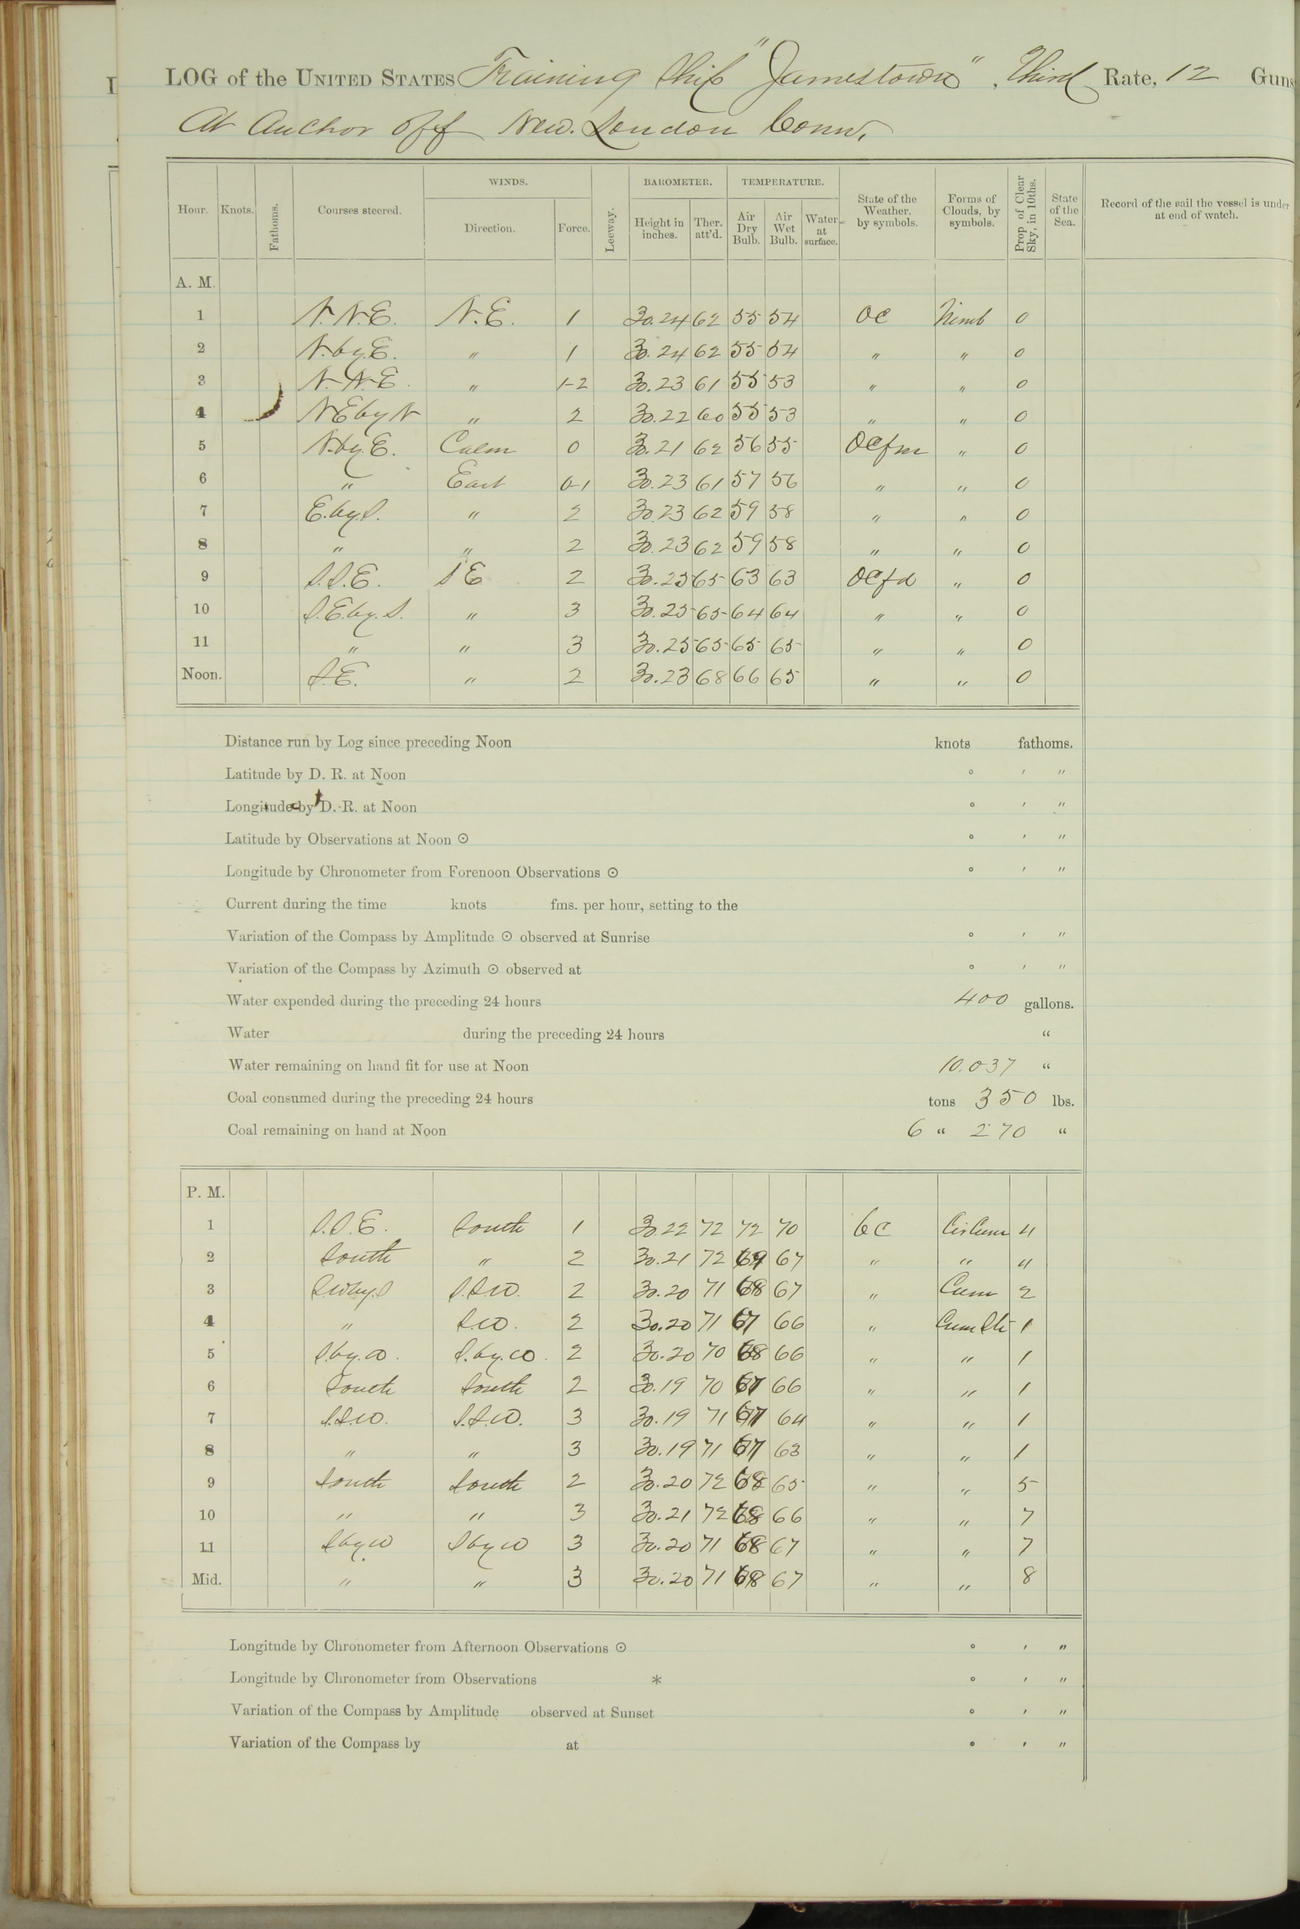 LOG of the UNITED STATES Training Ship "Jamestown", Third Rate, 12 Guns
At Anchor off New London Conn.
Hour. Knots. Fathoms. Courses steered. WINDS. Direction. Force. Leeway. BAROMETER. Height in inches. Ther. att'd. TEMPERATURE. Air Dry Bulb. Air Wet Bulb. Water at surface. State of the Weather, by symbols. Forms of Clouds, by symbols. Prop. of Clear Sky, in 10ths. State of the Sea. Record of the sail the vessel is under at end of watch.
A. M.
1 N.N.E. N.E. 1 30.24 62 55 54 OC Nimb 0
2 N.by.E. " 1 30.24 62 55 54 " " 0
3 N.N.E. " 1-2 30.23 61 55 53 " " 0
4 NEbyN " 2 30.22 60 55 53 " " 0
5 N.by.E. Calm 0 30.21 62 56 55 OCfm " 0
6 " East 0-1 30.23 61 57 56 " " 0
7 E.by.S. " 2 30.23 62 59 58 " " 0
8 " " 2 30.23 62 59 58 " " 0
9 S.S.E. SE 2 30.25 65 63 63 OCfd " 0
10 S.E.by.S. " 3 30.25 65 64 64 " " 0
11 " " 3 30.25 65 65 65 " " 0
Noon. S.E. " 2 30.23 68 66 65 " " 0
Distance run by Log since preceding Noon knots fathoms.
Latitude by D. R. at Noon ° ' "
Longitude by D. R. at Noon ° ' "
Latitude by Observations at Noon ☉ ° ' "
Longitude by Chronometer from Forenoon Observations ☉ ° ' "
Current during the time knots fms. per hour, setting to the
Variation of the Compass by Amplitude ☉ observed at Sunrise ° ' "
Variation of the Compass by Azimuth ☉ observed at ° ' "
Water expended during the preceding 24 hours 400 gallons.
Water during the preceding 24 hours "
Water remaining on hand fit for use at Noon 10.037 "
Coal consumed during the preceding 24 hours tons 350 lbs.
Coal remaining on hand at Noon 6 " 270 "
P. M.
1 S.S.E. South 1 30.22 72 72 70 bc CirCum 4
2 South " 2 30.21 72 69 67 " " 4
3 SWby.S S.SW. 2 30.20 71 68 67 " Cum 2
4 " SW. 2 30.20 71 67 66 " Cum Str 1
5 S.by.W. S.by.W. 2 30.20 70 68 66 " " 1
6 South South 2 30.19 70 67 66 " " 1
7 S.S.W. S.S.W. 3 30.19 71 67 64 " " 1
8 " " 3 30.19 71 67 63 " " 1
9 South South 2 30.20 72 68 65 " " 5
10 " " 3 30.21 72 68 66 " " 7
11 SbyW SbyW 3 30.20 71 68 67 " " 7
Mid. " " 3 30.20 71 68 67 " " 8
Longitude by Chronometer from Afternoon Observations ☉ ° ' "
Longitude by Chronometer from Observations * ° ' "
Variation of the Compass by Amplitude observed at Sunset ° ' "
Variation of the Compass by at ° ' "